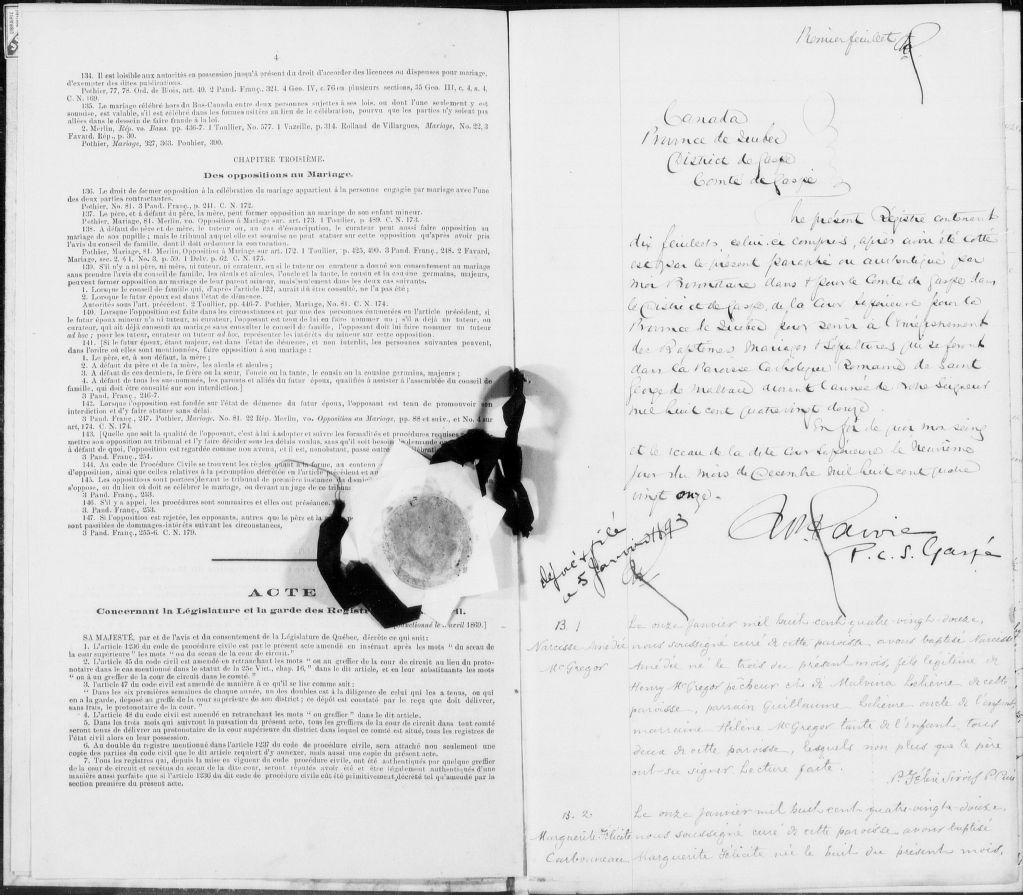 4
134. Il est loisible aux autorités en possession jusqu'à présent du droit d'accorder des licences ou dispenses pour mariage,
d'exempter des dites publications.
Pothier, 77, 78. Ord. de Blois, art. 40. 2 Pand. Franç., 324. 4 Geo. IV, c. 76 en plusieurs sections, 35 Geo. III, c. 4, s. 4,
C. N. 169.
135. Le mariage célébré hors du Bas-Canada entre deux personnes sujettes à ses lois, ou dont l'une seulement y est
soumise, est valable, s'il est célébré dans les formes usitées au lieu de la célébration, pourvu que les parties n'y soient pas
allées dans le dessein de faire fraude à la loi.
2. Merlin, Rép. vo. Bans. pp. 436-7. 1 Toullier, No. 577. 1 Vazeille, p. 314. Rolland de Villargues, Mariage, No. 22, 3
Favard, Rép., p. 30.
Pothier, Mariage, 327, 363. Pouhier, 390.
CHAPITRE TROISIÈME.
Des oppositions au Mariage.
136. Le droit de former opposition à la célébration du mariage appartient à la personne engagée par mariage avec l'une
des deux parties contractantes.
Pothier, No. 81. 3 Pand. Franç., p. 241. C. N. 172.
137. Le père, et à défaut du père, la mère, peut former opposition au mariage de son enfant mineur.
Pothier, Mariage, 81. Merlin, vo. Opposition à Mariage sur. art. 173. 1 Toullier, p 489. C. N. 173.
138. A défaut de père et de mère, le tuteur ou, au cas d'émancipation, le curateur peut aussi faire opposition au
mariage de son pupille; mais le tribunal auquel elle est soumise ne peut statuer sur cette opposition qu'après avoir pris
l'avis du conseil de famille, dont il doit ordonner la convocation.
Pothier, Mariage, 81. Merlin, Opposition à Mariage sur art. 172. 1 Toullier, p. 425, 490. 3 Pand. Franç., 248. 2 Favard,
Mariage, sec. 2, § I. No. 3, p. 59. 1 Delv. p. 62. C. N. 175.
139. S'il n'y a ni père, ni mère, ni tuteur, ni curateur, ou si le tuteur ou curateur a donné son consentement au mariage
sans prendre l'avis du conseil de famille, les aïeuls et aïeules, l'oncle et la tante, le cousin et la cousine germains, majeurs,
peuvent former opposition au mariage de leur parent mineur, mais seulement dans les deux cas suivants.
1. Lorsque le conseil de famille qui, d'après l'article 122, aurait dû être consulté, ne l'a pas été;
2. Lorsque le futur époux est dans l'état de démence.
Autorités sous l'art. précédent. 2 Toullier, pp. 446-7. Pothier, Mariage, No. 81. C. N. 174.
140. Lorsque l'opposition est faite dans les circonstances et par une des personnes énumérées en l'article précédent, si
le futur époux mineur n'a ni tuteur, ni curateur, l'opposant est tenu de lui en faire nommer un; s'il a déjà un tuteur, ou
curateur, qui ait déjà consenti au mariage sans consulter le conseil de famille, l'opposant doit lui faire nommer un tuteur
ad hoc; pour les tuteur, curateur ou tuteur ad hoc, représenter les intérêts du mineur sur cette opposition.
141. [Si le futur époux, étant majeur, est dans l'état de démence, et non interdit, les personnes suivantes peuvent,
dans l'ordre où elles sont mentionnées, faire opposition à son mariage:
1. Le père, et, à son défaut, la mère;
2. A défaut du père et de la mère, les aïeuls et aïeules;
3. A défaut de ces derniers, le frère ou la sœur, l'oncle ou la tante, le cousin ou la cousine germains, majeurs;
4. A défaut de tous les sus-nommés, les parents et alliés du futur époux, qualifiés à assister à l'assemblée du conseil de
famille, qui doit être consulté sur son interdiction.]
3 Pand. Franç., 246-7.
142. Lorsque l'opposition est fondée sur l'état de démence du futur époux, l'opposant est tenu de promouvoir son
interdiction et d'y faire statuer sans délai.
3 Pand. Franç., 247. Pothier, Mariage. No. 81. 22 Rép. Merlin, vo. Opposition au Mariage, pp. 88 et suiv., et No. 4 sur
art, 174. C. N. 174.
143. [Quelle que soit la qualité de l'opposant, c'est à lui à adopter et suivre les formalités et procédures requises
mettre son opposition au tribunal et l'y faire décider sous les délais voulus, sans qu'il soit besoin de demande
à défaut de quoi, l'opposition est regardée comme non avenu, et il est, nonobstant, passé outre
3 Pand. Franç., 254.
144. Au code de Procédure Civile se trouvent les règles quant à la forme, au contenu
d'opposition, ainsi que celles relatives à la péremption décrétée en l'article précédent et
145. Les oppositions sont portées devant le tribunal de première instance du domicile
s'oppose, ou du lieu où doit se célébrer le mariage, ou devant un juge de ce tribunal
3 Pand. Franç., 253.
146. S'il y a appel, les procédures sont sommaires et elles ont préséance.
3. Pand. Franç., 253.
147. Si l'opposition est rejetée, les opposants, autres que le père et la
sont passibles de dommages-intérêts suivant les circonstances.
3 Pand. Franç., 255-6. C. N. 179.
ACTE
Concernant la Législature et la garde des Registres
avril 1869.]
SA MAJESTÉ, par et de l'avis et du consentement de la Législature de Québec, décrète ce qui suit:
1. L'article 1236 du code de procédure civile est par le présent acte amendé en insérant après les mots "du sceau de
la cour supérieure" les mots "ou du sceau de la cour de circuit."
2. L'article 45 du code civil est amendé en retranchant les mots "ou au greffier de la cour de circuit au lieu du proto-
notaire dans le cas mentionné dans le statut de la 25e Vict., chap. 16," dans le dit article, et en leur substituant les mots
"ou à un greffier de la cour de circuit dans le comté."
3. L'article 47 du code civil est amendé de manière à ce qu'il se lise comme suit:
"Dans les six premières semaines de chaque année, un des doubles est à la diligence de celui qui les a tenus, ou qui
en a la garde, déposé au greffe de la cour supérieure de son district; ce dépôt est constaté par le reçu que doit délivrer,
sans frais, le protonotaire de la cour."
4. L'article 48 du code civil est amendé en retranchant les mots "ou greffier" dans le dit article.
5. Dans les trois mois qui suivront la passation du présent acte, tous les greffiers de la cour de circuit dans tout comté
seront tenus de délivrer au protonotaire de la cour supérieure du district dans lequel ce comté est situé, tous les registres de
l'état civil alors en leur possession.
6. Au double du registre mentionné dans l'article 1237 du code de procédure civile, sera attaché non seulement une
copie des parties du code civil que le dit article requiert d'y annexer, mais aussi une copie du présent acte.
7. Tous les registres qui, depuis la mise en vigueur du code de procédure civile, ont été authentiqués par quelque greffier
de la cour de circuit et revêtus du sceau de la dite cour, seront réputés avoir été et être légalement authentiqués d'une
manière aussi parfaite que si l'article 1236 du dit code de procédure civile eût été primitivement décrété tel qu'amendé par la
section première du présent acte.
Premier feuillet
Canada
Province de Québec
District de Gaspé
Comté de Gaspé
Le présent Régistre contenant
dix feuillets, celui-ci compris, après avoir été cotté
est par le présent paraphé ou authentiqué par
moi Protonotaire dans & pour le Comté de Gaspé dans
le District de Gaspé, de la Cour supérieure pour la
Province de Québec pour servir à l'enregistrement
des Baptêmes, Mariages & Sépultures qui se feront
dans la Paroisse Catholique Romaine de Saint
George de Malbaie durant l'année de Notre Seigneur
mil huit cent quatre vingt douze.
En foi de quoi mon seing
et le sceau de la dite Cour supérieure le neuvième
jour du mois de Décembre mil huit cent quatre
vingt onze.
P. C. S. Gaspé
Déposé & filé
ce 5 Janvier 1893
B. 1
Narcesse Amédie
McGregor
Le onze janvier mil huit cent quatre-vingt-douze,
nous soussigné curé de cette paroisse, avons baptisé Narcesse
Amédie né le trois du présent mois, fils légitime de
Henry McGregor pêcheur et de Malvina Lelièvre de cette
paroisse, parrain Guillaume Lelièvre oncle de l'enfant
marraine Hélène McGregor tante de l'enfant, tous
deux de cette paroisse, lesquels non plus que le père
ont su signer. Lecture faite.
Félix Sirois Ptre Curé
B. 2
Marguerite-Félicité
Carbonneau
Le onze janvier mil huit cent quatre-vingt-douze,
nous soussigné curé de cette paroisse avons baptisé
Marguerite Félicité née le huit du présent mois,